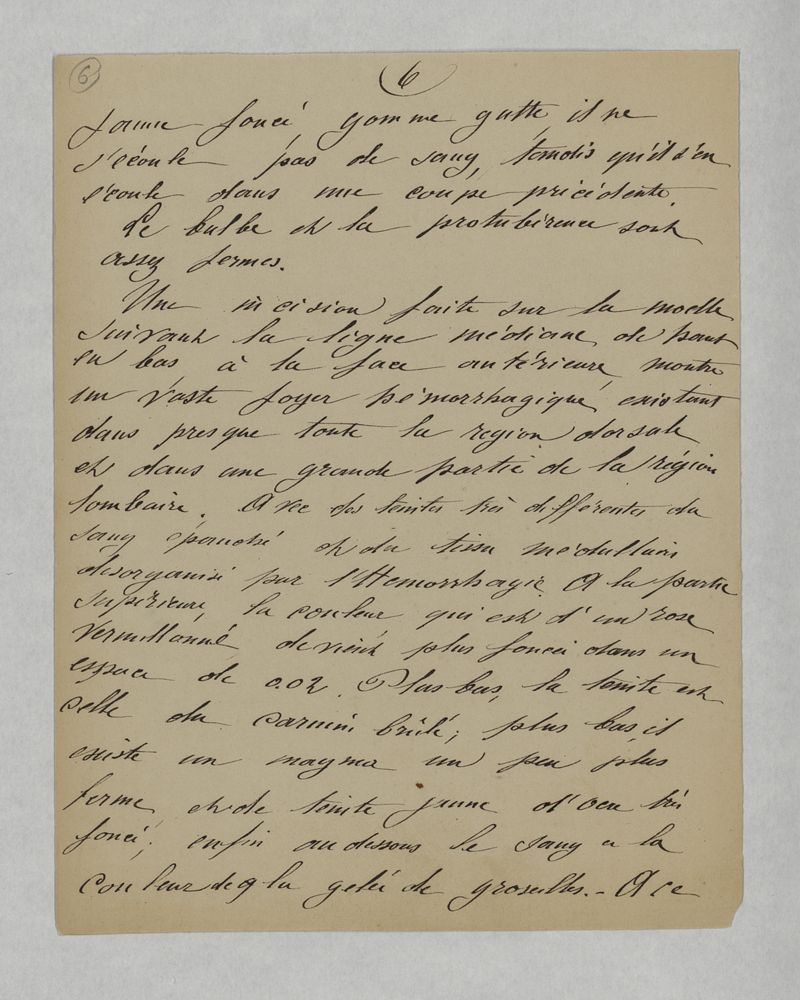 6
6
jaune foncé, gomme gutte, il ne
s'écoule pas de sang, tandis qu'il s'en
écoule dans une coupe précédente.
Le bulbe et la protubérance sont
assez fermes.
Une incision faite sur la moelle
suivant la ligne médiane, de haut
en bas, à la face antérieure, montre
un vaste foyer hémorrhagique, existant
dans presque toute la région dorsale
et dans une grande partie de la région
lombaire. Avec des teintes très différentes du
sang épanché et du tissu médullaire
désorganisé par l'Hémorrhagie. A la partie
supérieure, la couleur qui est d'un rose
vermillonné devient plus foncée dans un
espace de 0.02. Plus bas, la teinte est
celle du carmin brûlé; plus bas il
existe un magma un peu plus
ferme et de teinte jaune d'ocre très
foncé; enfin au dessous le sang a la
couleur de la gelée de groseilles. - A ce